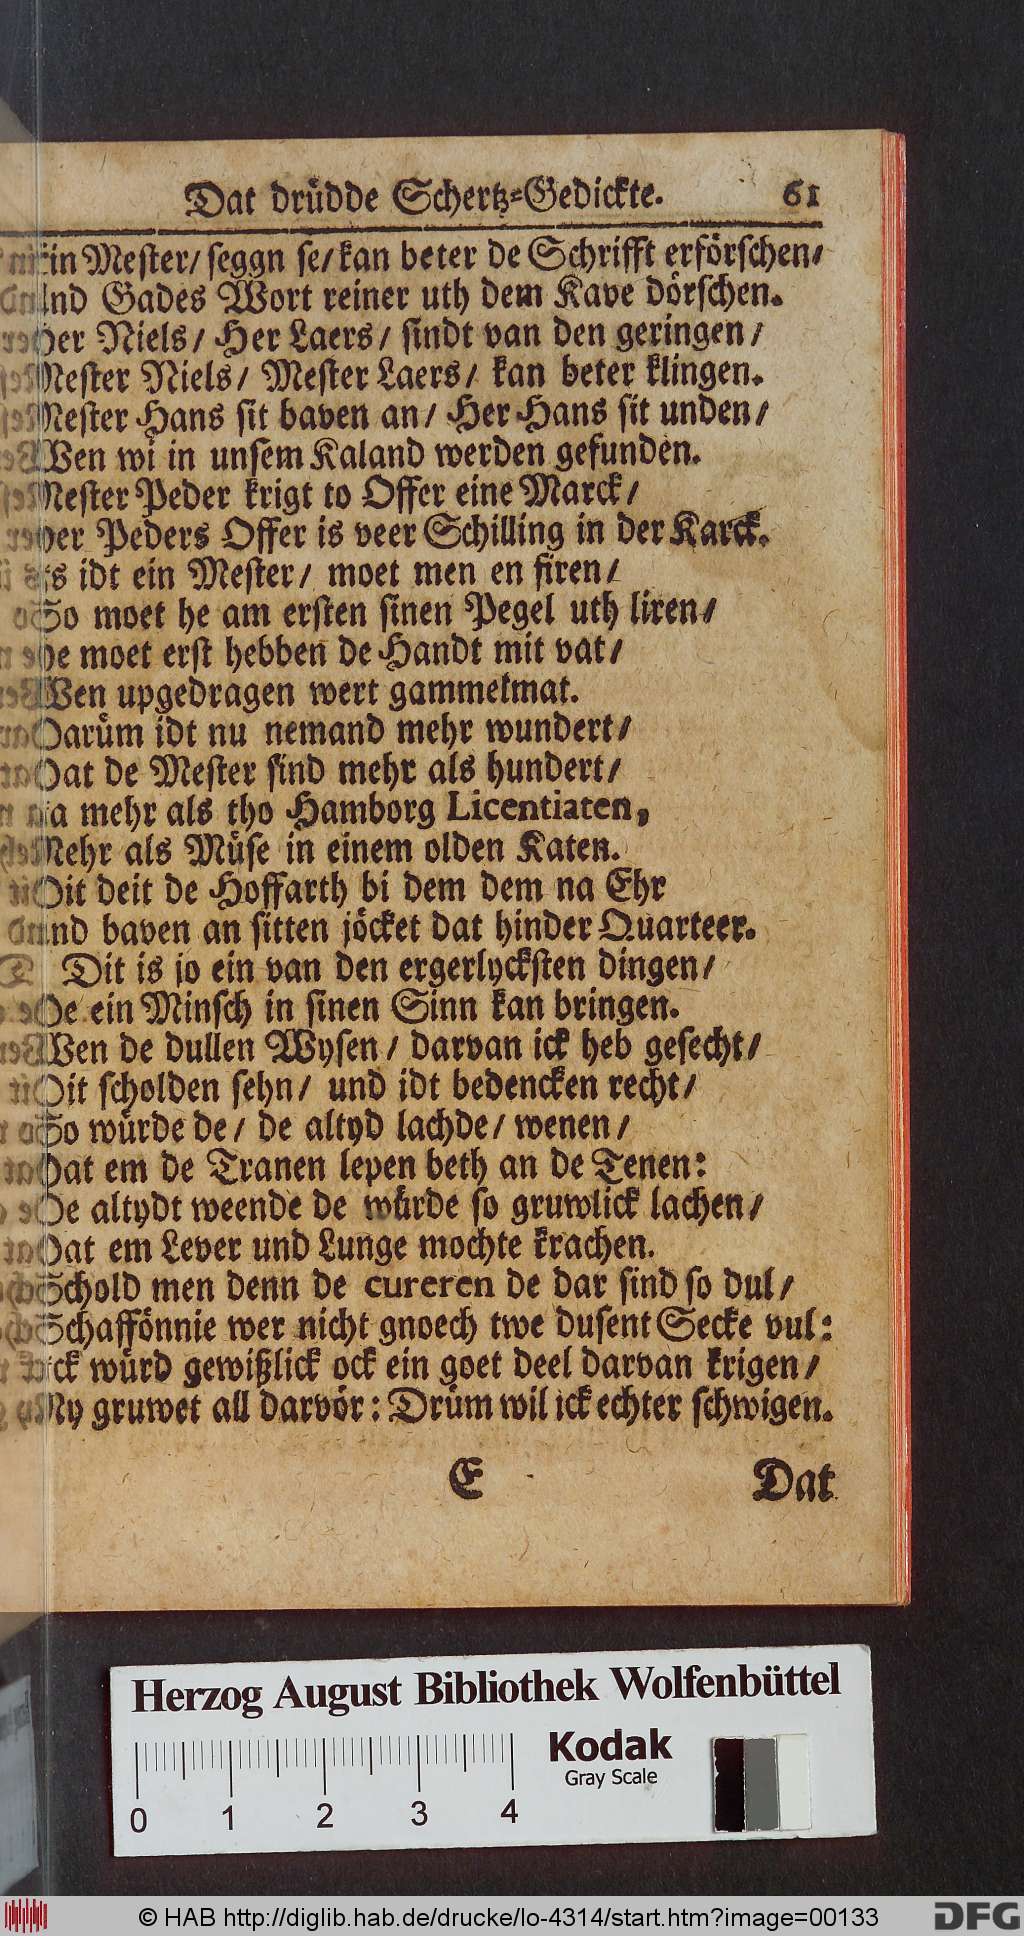 Dat drüdde Schertz=Gedickte. 61
Ein Mester/ seggn se/ kan beter de Schrifft erförschen/
Und Gades Wort reiner uth dem Kave dörschen.
Her Niels/ Her Laers/ sindt van den geringen/
Mester Niels/ Mester Laers/ kan beter klingen.
Mester Hans sit baven an/ Her Hans sit unden/
Wen wi in unsem Kaland werden gefunden.
Mester Peder krigt to Offer eine Marck/
Her Peders Offer is veer Schilling in der Karck.
Is idt ein Mester/ moet men en firen/
So moet he am ersten sinen Pegel uth liren/
He moet erst hebben de Handt mit vat/
Wen upgedragen wert gammelmat.
Darüm idt nu nemand mehr wundert/
Dat de Mester sind mehr als hundert/
Ja mehr als tho Hamborg Licentiaten,
Mehr als Müse in einem olden Katen.
Dit deit de Hoffarth bi dem dem na Ehr
Und baven an sitten jöcket dat hinder Quarteer.
Dit is jo ein van den ergerlycksten dingen/
De ein Minsch in sinen Sinn kan bringen.
Wen de dullen Wysen/ darvan ick heb gesecht/
Dit scholden sehn/ und idt bedencken recht/
So würde de/ de altyd lachde/ wenen/
Dat em de Tranen lepen beth an de Tenen:
De altydt weende de würde so gruwlick lachen/
Dat em Lever und Lunge mochte krachen.
Schold men denn de cureren de dar sind so dul/
Schaffönnie wer nicht gnoech twe dusent Secke vul:
Ick würd gewißlick ock ein goet deel darvan krigen/
My gruwet all darvör: Drüm wil ick echter schwigen.
E Dat
Herzog August Bibliothek Wolfenbüttel
Kodak
Gray Scale
0 1 2 3 4
© HAB http://diglib.hab.de/drucke/lo-4314/start.htm?image=00133
DFG